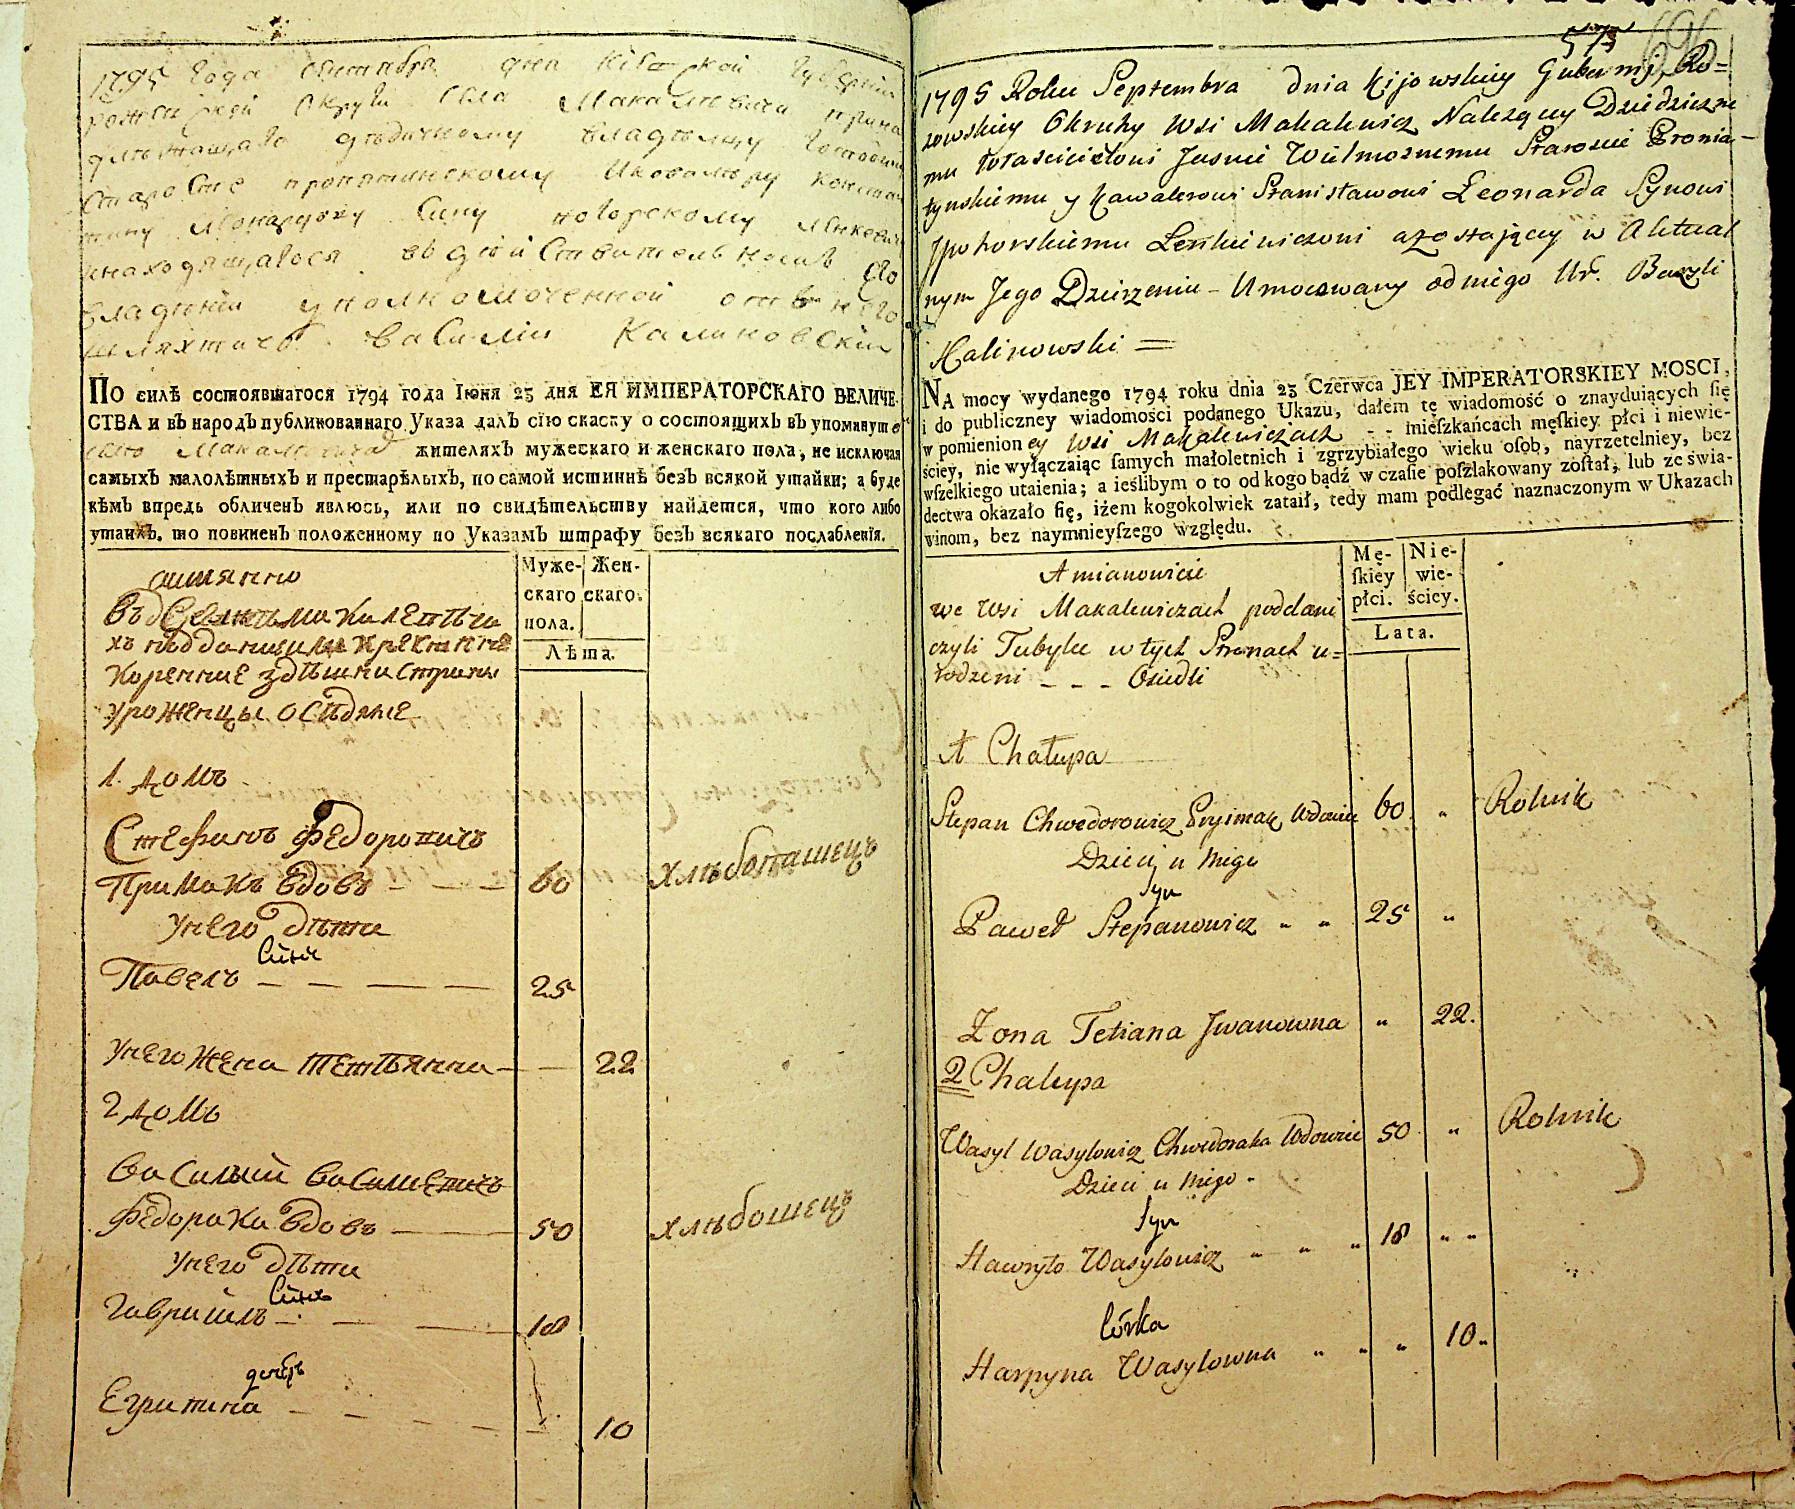 1795 года сентября дня Кіевской Губерніи
округи села Макалевичи
дѣдичному владѣльцу
Старостѣ пропятинскому и кавалеру
Леонардову сыну
находящагося въ дѣйствительномъ его
владѣніи уполномоченной отъ него
шляхтичъ Василій Калиновскій
ПО силѣ состоявшагося 1794 года Іюня 23 дня ЕЯ ИМПЕРАТОРСКАГО ВЕЛИЧЕ-
СТВА и въ народъ публикованнаго Указа далъ сію скаску о состоящихъ въ упомянут
жителяхъ мужескаго и женскаго пола, не исключая
самыхъ малолѣтныхъ и престарѣлыхъ, по самой истиннѣ безъ всякой утайки; а буде
кѣмъ впредь обличенъ явлюсь, или по свидѣтельству найдется, что кого либо
утаилъ, то повиненъ положенному по Указамъ штрафу безъ всякаго послабленія.
Муже- Жен-
скаго скаго.
пола.
Лѣта.
аимянно
Коренние здѣшни страны
Уроженцы осѣдлые
1. домъ
Стефанъ Федоровичъ
Примакъ вдовъ — — — 60 хлѣбопашецъ
Унего дѣти
Синъ
Павелъ — — — — 25
Унего жена Тетьянна — — 22
2 домъ
Василий Василиевичъ
Федорака вдовъ — — 50 хлѣбошецъ
Унего дѣти
Синъ
Гавриилъ — — — 18
дочерь
— — — — — 10
575
1795 Roku Septembra dnia Kijowskiey Gubernij, Ro=
mowskiey Okruhy Wsi Makalewicz Należącey Dziedziczne
mu Właścicielowi Jaśnie Wielmożnemu Staroście Pronia-
tyńskiemu y Kawalerowi Stanisławowi Leonarda Synowi
Leńkiewiczowi a zostającey w Aktual
nym Jego Dzierżeniu - Umocowany od niego Ur. Bazyli
Kalinowski =
NA mocy wydanego 1794 roku dnia 23 Czerwca JEY IMPERATORSKIEY MOSCI,
i do publiczney wiadomości podanego Ukazu, dałem tę wiadomość o znayduiących się
w pomienioney Wsi Makalewiczach - - mieſzkańcach męſkiey płci i niewie-
ściey, nie wyłączaiąc ſamych małoletnich i zgrzybiałego wieku oſób, nayrzetelniey, bez
wſzelkiego utaienia; a ieślibym o to od kogo bądź w czaſie poſzlakowany zoſtał, lub ze świa-
dectwa okazało ſię, iżem kogokolwiek zataił, tedy mam podlegać naznaczonym w Ukazach
winom, bez naymnieyſzego względu.
Mę- Nie-
ſkiey wie-
płci. ściey.
Lata.
A mianowicie
we Wsi Makalewiczach poddani
czyli Tubylce w tych Stronach u=
rodzeni - - - Osiedli
1 Chałupa
Stepan Chwedorowicz Pryimak Wdowiec 60 " Rolnik
Dzieci u niego
Syn
Paweł Stepanowicz " " 25 "
Żona Tetiana Jwanowna " 22.
2 Chałupa
Wasyl Wasylowicz Chwedoraka Wdowiec 50 " Rolnik
Dzieci u niego
Syn
Hawryło Wasylowicz " " " 18 " "
Córka
Harpyna Wasylowna " " " 10 "